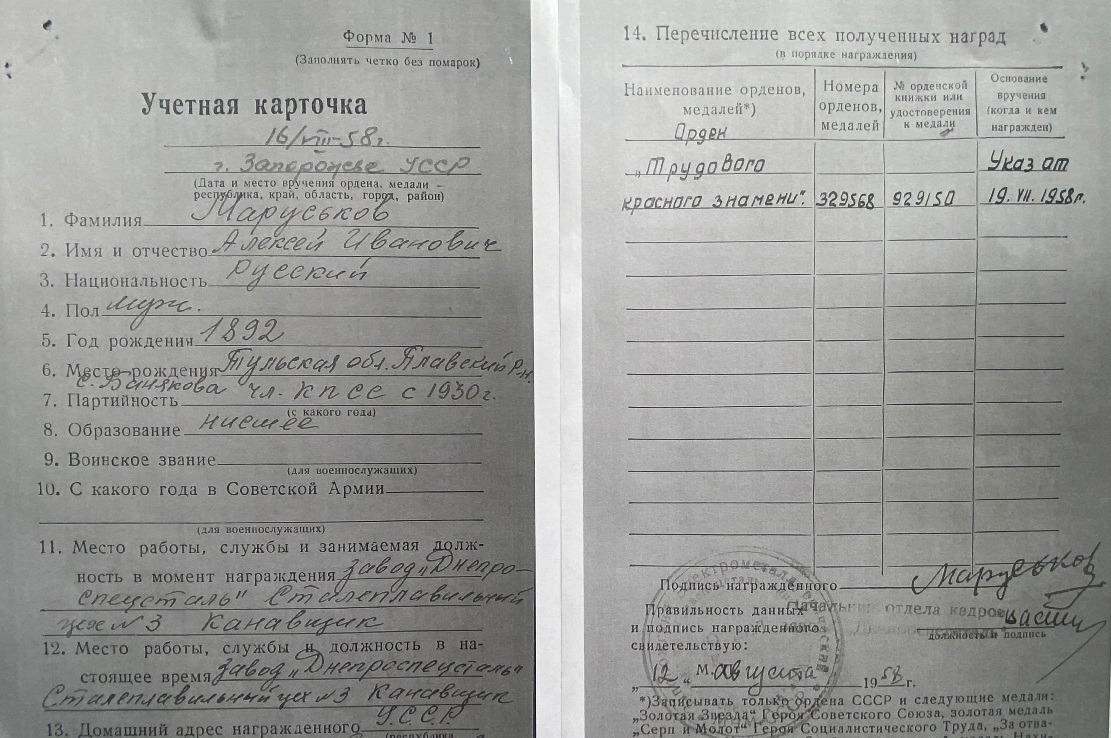 Форма № 1
(Заполнять четко без помарок)
Учетная карточка
16/VIII-58г.
г. Запорожье УССР
(Дата и место вручения ордена, медали –
республика, край, область, город, район)
1. Фамилия Маруськов
2. Имя и отчество Алексей Иванович
3. Национальность Русский
4. Пол муж.
5. Год рождения 1892
6. Место рождения Тульская обл. Плавский р-н.
с.
7. Партийность чл. КПСС с 1930г.
(с какого года)
8. Образование низшее
9. Воинское звание
(для военнослужащих)
10. С какого года в Советской Армии
(для военнослужащих)
11. Место работы, службы и занимаемая долж-
ность в момент награждения завод „Днепро-
спецсталь" Сталеплавильный
цех №3 Канавщик
12. Место работы, службы и должность в на-
стоящее время завод „Днепроспецсталь"
Сталеплавильный цех №3 Канавщик
13. Домашний адрес награжденного У.С.С.Р.
(республика
14. Перечисление всех полученных наград
(в порядке награждения)
Наименование орденов, медалей*)
Номера орденов, медалей
№ орденской книжки или удостоверения к медали
Основание вручения (когда и кем награжден)
Орден
„Трудового Указ от
красного знамени". 329568 929150 19. VII. 1958г.
Подпись награжденного Маруськов
Правильность данных Начальник отдела кадров
и подпись награжденного
должность и подпись
свидетельствую:
„12" августа 1958 г.
*)Записывать только ордена СССР и следующие медали:
„Золотая Звезда" Героя Советского Союза, золотая медаль
„Серп и Молот" Героя Социалистического Труда, „За отва-